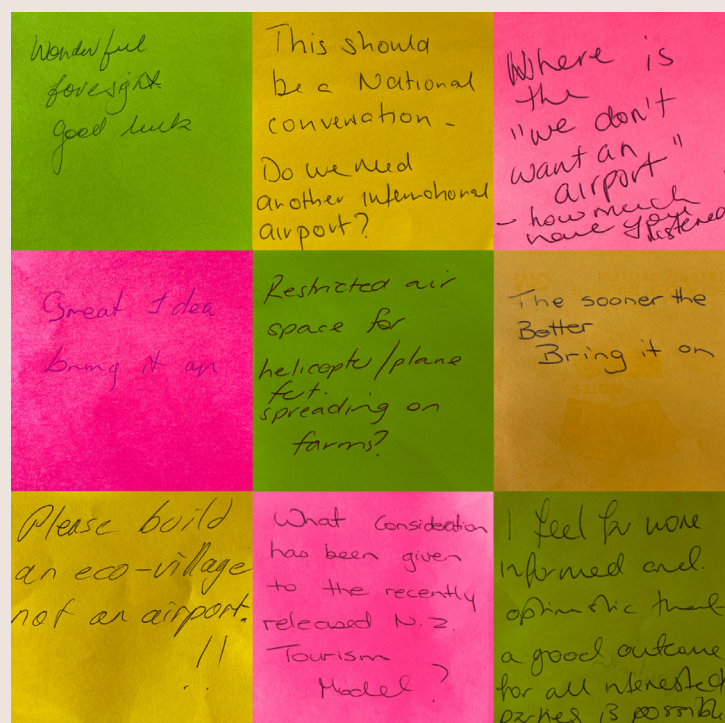 Wonderful
foresight
Good luck
This should
be a National
conversation -
Do we need
another international
airport?
Where is
the
"we don't
want an
airport"
- how much
have you listened
Great Idea
bring it on
Restricted air
space for
helicopter/plane
fert.
spreading on
farms?
The sooner the
Better
Bring it on
Please build
an eco-village
not an airport.
!!
What Consideration
has been given
to the recently
released N.Z.
Tourism
Model?
I feel far more
informed and.
optimistic that
a good outcome
for all interested
parties is possible